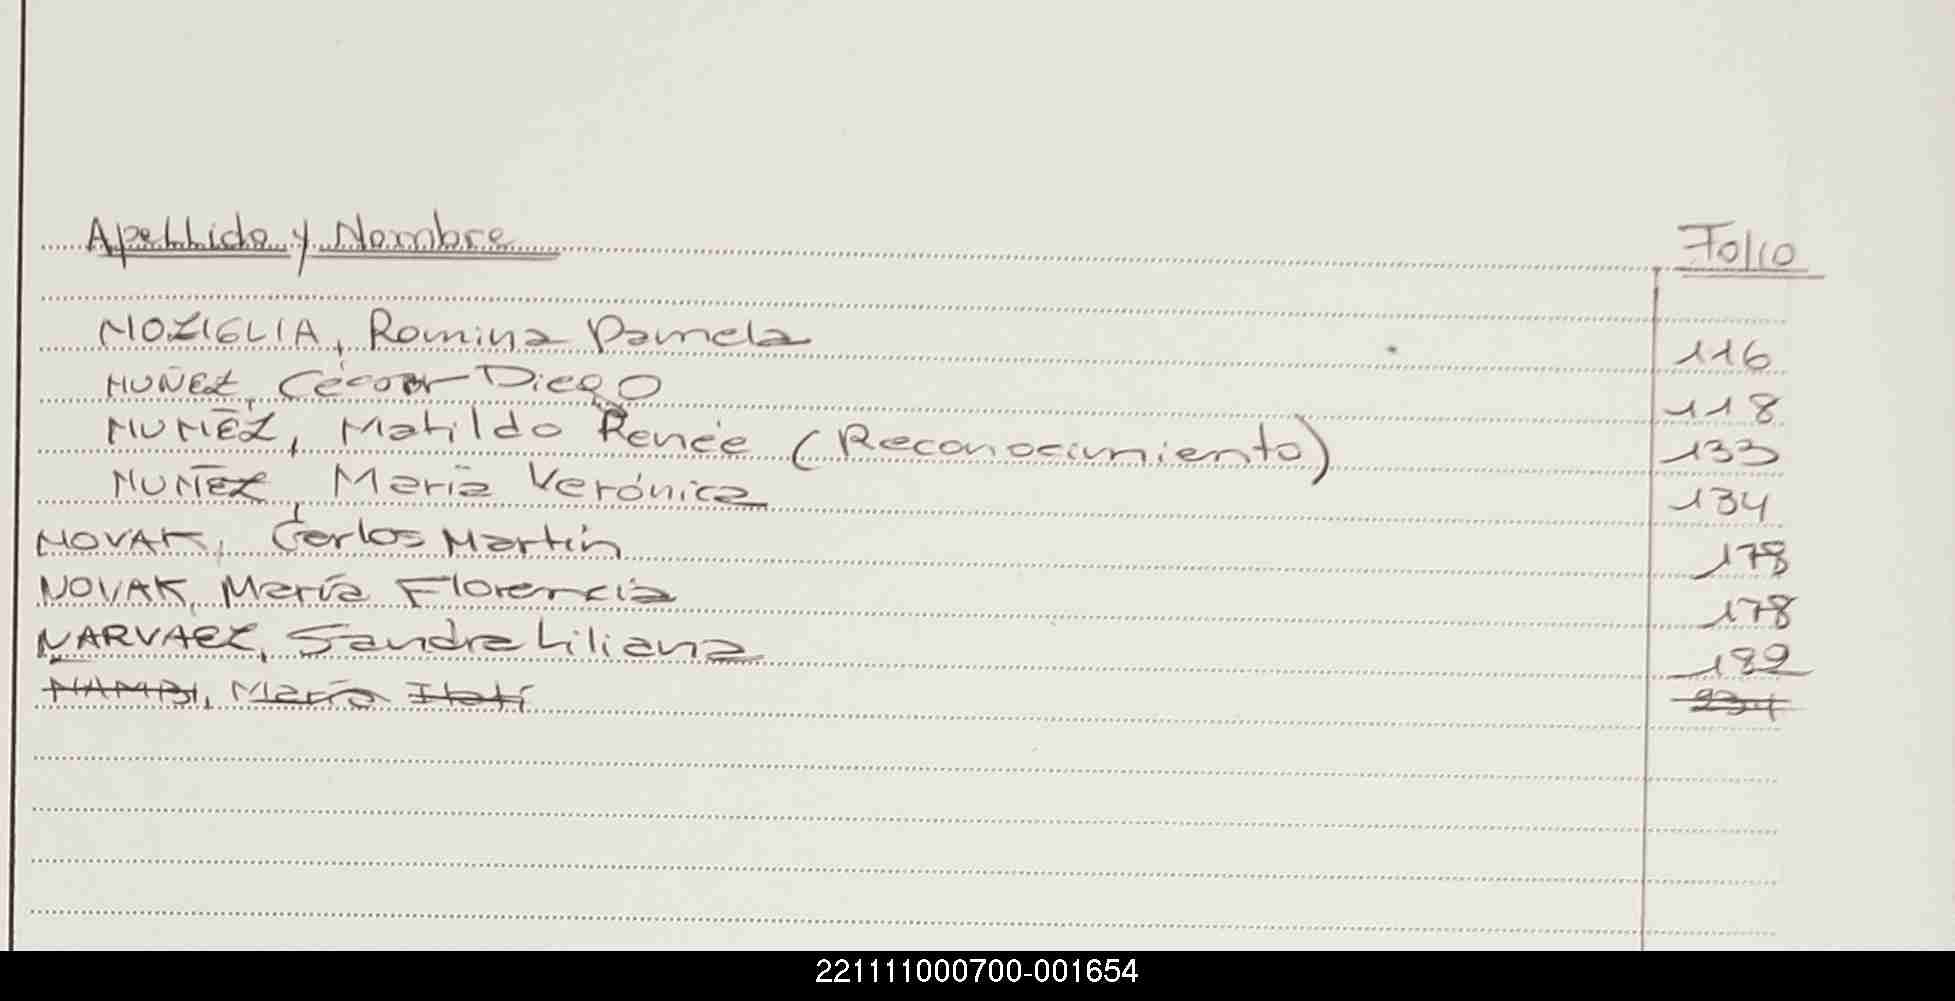 Apellido y Nombre Folio
NOZIGLIA, Romina Pamela 116
NUÑEZ, César Diego 118
NUÑEZ, Matilde Renée (Reconocimiento) 133
NUÑEZ, María Verónica 134
NOVAK, Carlos Martín 178
NOVAK, María Florencia 178
NARVAEZ, Sandra Liliana 182
NAMBI, María Itatí 234
221111000700-001654